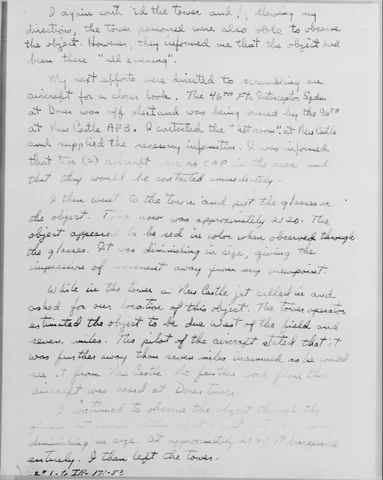 I again cont 'ed the tower and, following my
directions, the tower personnel were also able to observe
the object. However, they informed me that the object had
been there "all evening".
My next efforts were directed to scrambling an
aircraft for a closer look. The 46TH Ftr Interceptor Sqdn
at Dover was off alert and was being covered by the 96TH
at New Castle AFB. I contacted the "jet room" at New Castle
and supplied the necessary information. I was informed
that two (2) aircraft were on CAP in the area and
that they would be contacted immediately.
I then went to the tower and put the glasses on
the object. Time now was approximately 2120. The
object appeared to be red in color when observed through
the glasses. It was diminishing in size, giving the
impression of movement away from my viewpoint.
While in the tower a New Castle jet called in and
asked for our location of this object. The tower operator
estimated the object to be due West of the field and
seven miles. The pilot of the aircraft stated that it
was further away than seven miles inasmuch as he could
see it from New Castle. No further word from this
aircraft was heard at Dover tower.
I continued to observe the object through the
glasses
diminishing in size. At approximately 2140 it disappeared
entirely. I then left the tower.